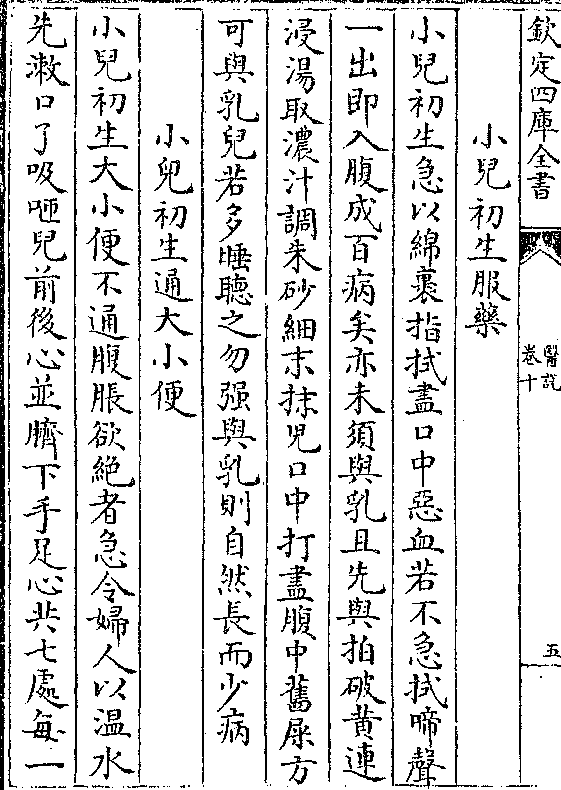 欽定四庫全書
醫說
卷十
五
小兒初生服藥
小兒初生急以綿裹指拭盡口中惡血若不急拭啼聲
一出即入腹成百病矣亦未須與乳且先與拍破黄連
浸湯取濃汁調朱砂細末抹児口中打盡腹中舊屎方
可與乳兒若多睡聽之勿强與乳則自然長而少病
小兒初生通大小便
小兒初生大小便不通腹脹欲絶者急令婦人以温水
先漱口了吸咂兒前後心並臍下手足心共七處每一